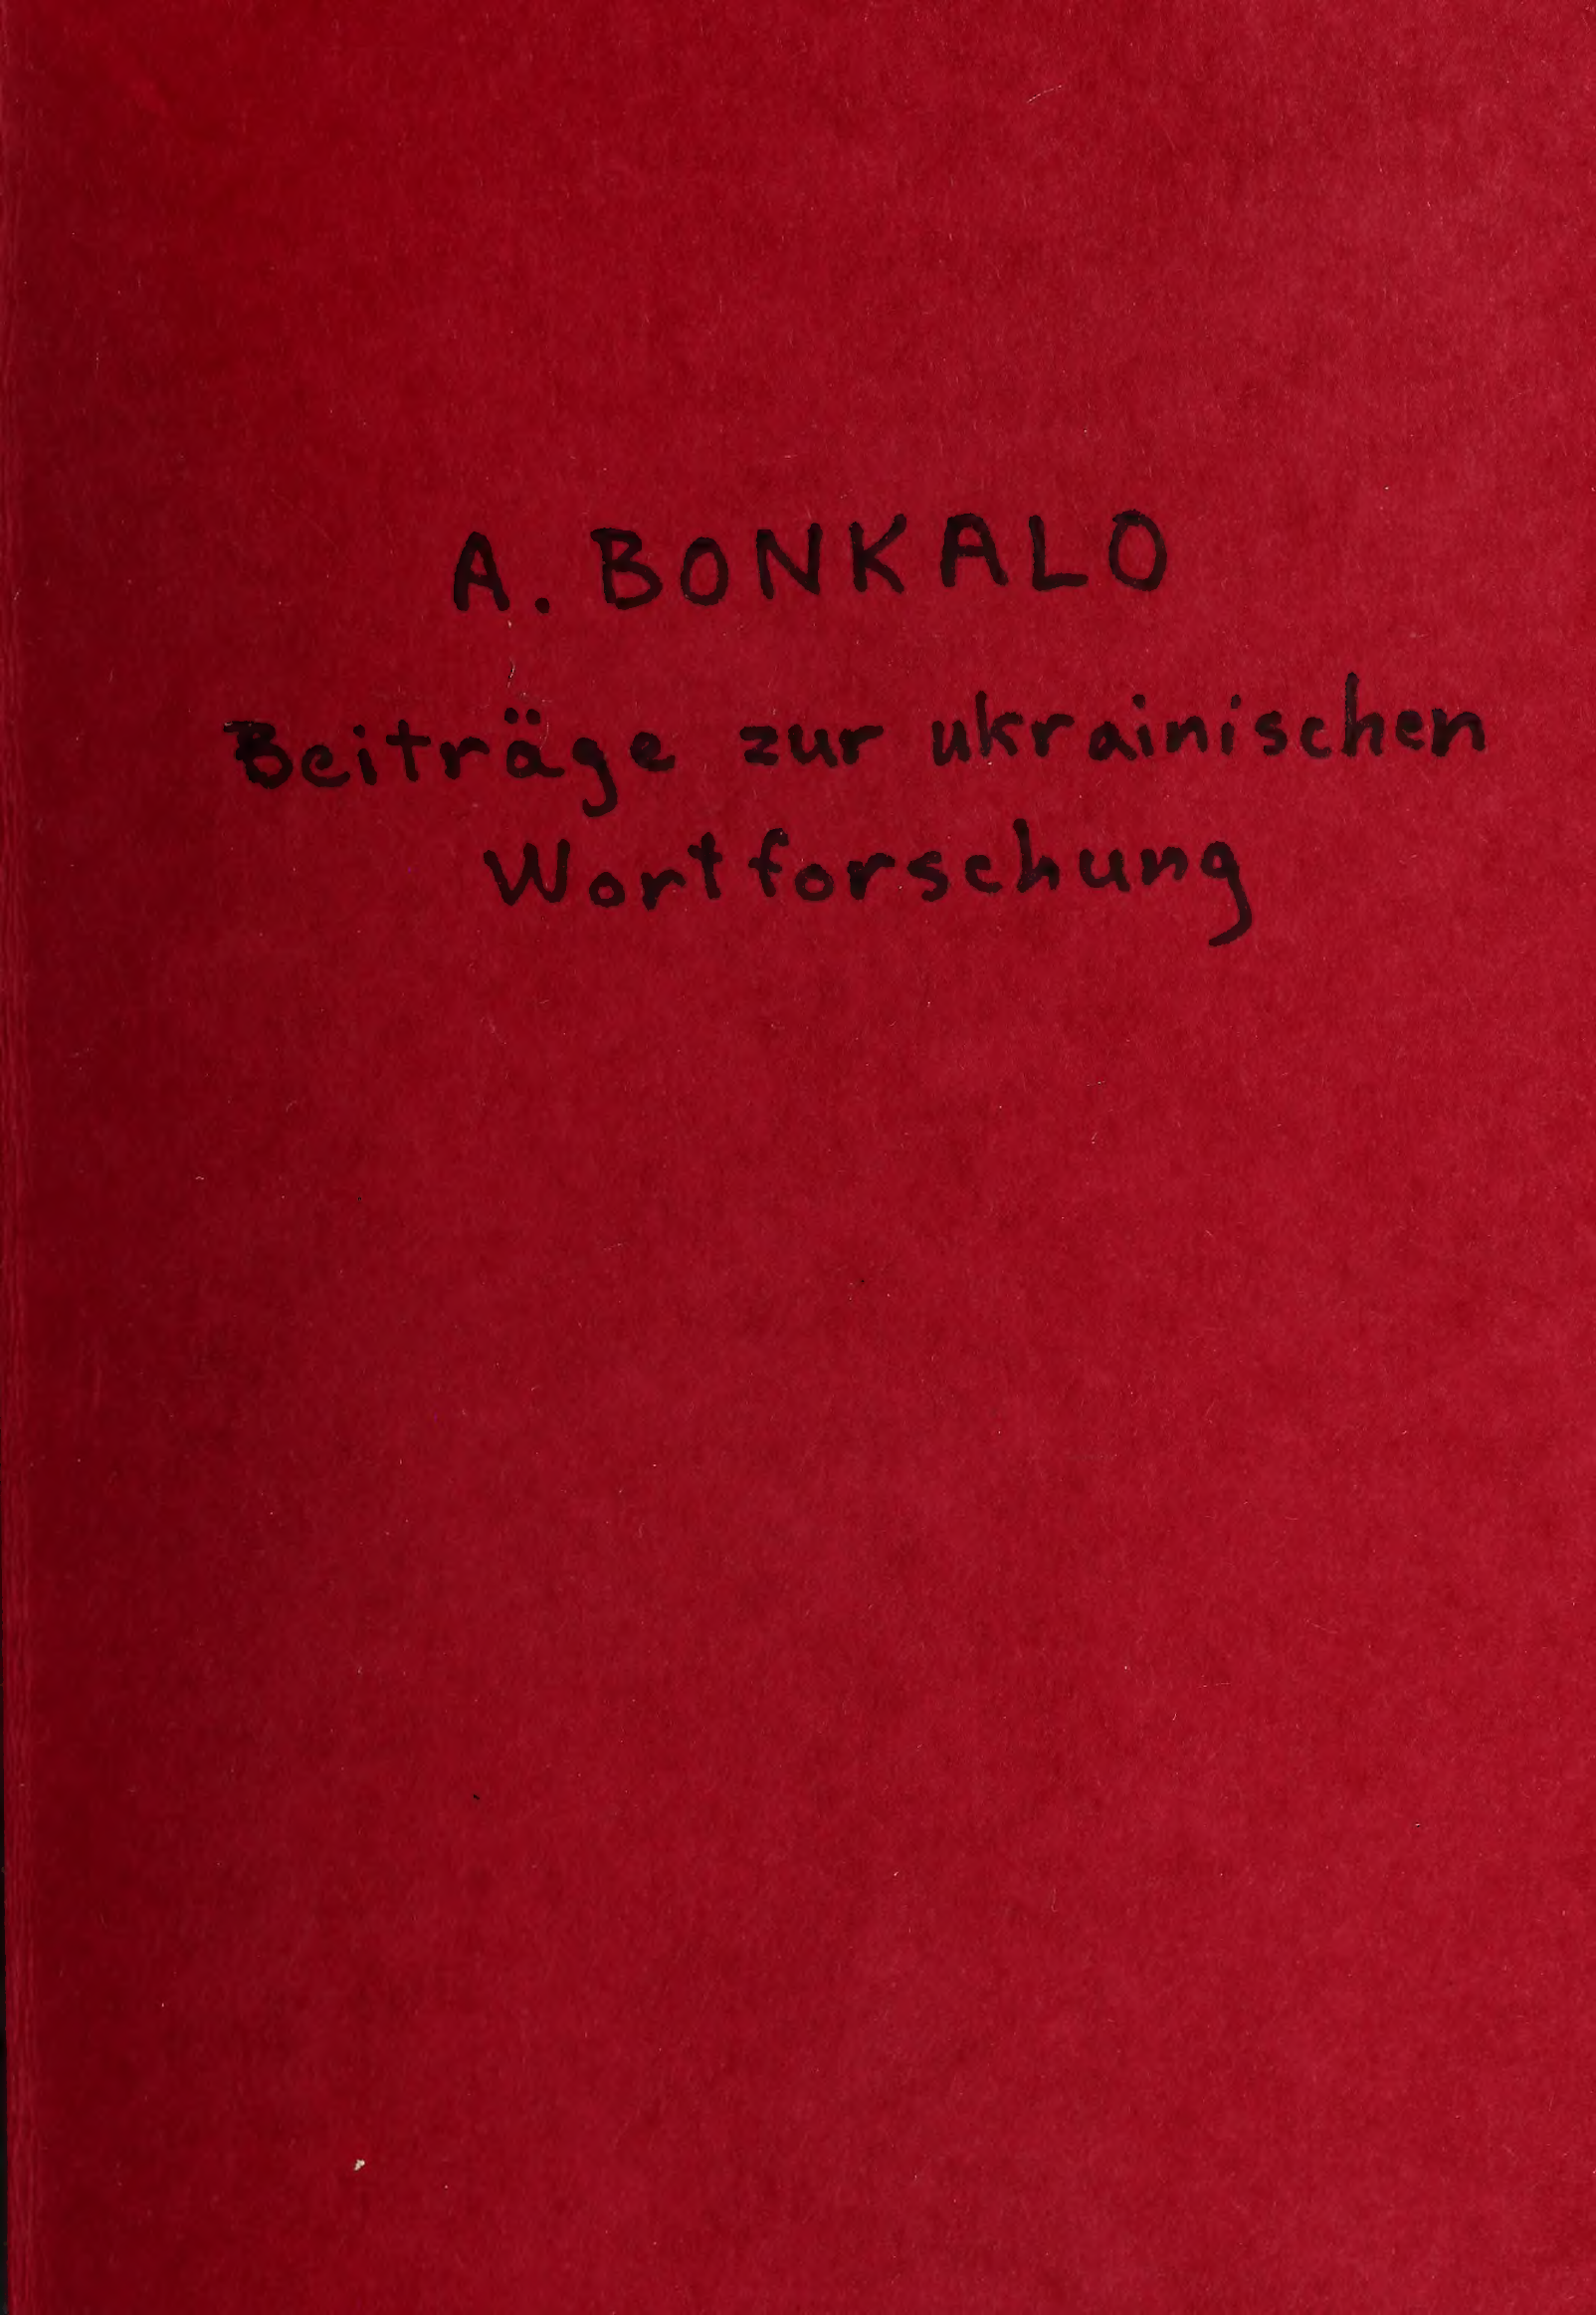 A. BONKALO
Beiträge zur ukrainischen
Wortforschung